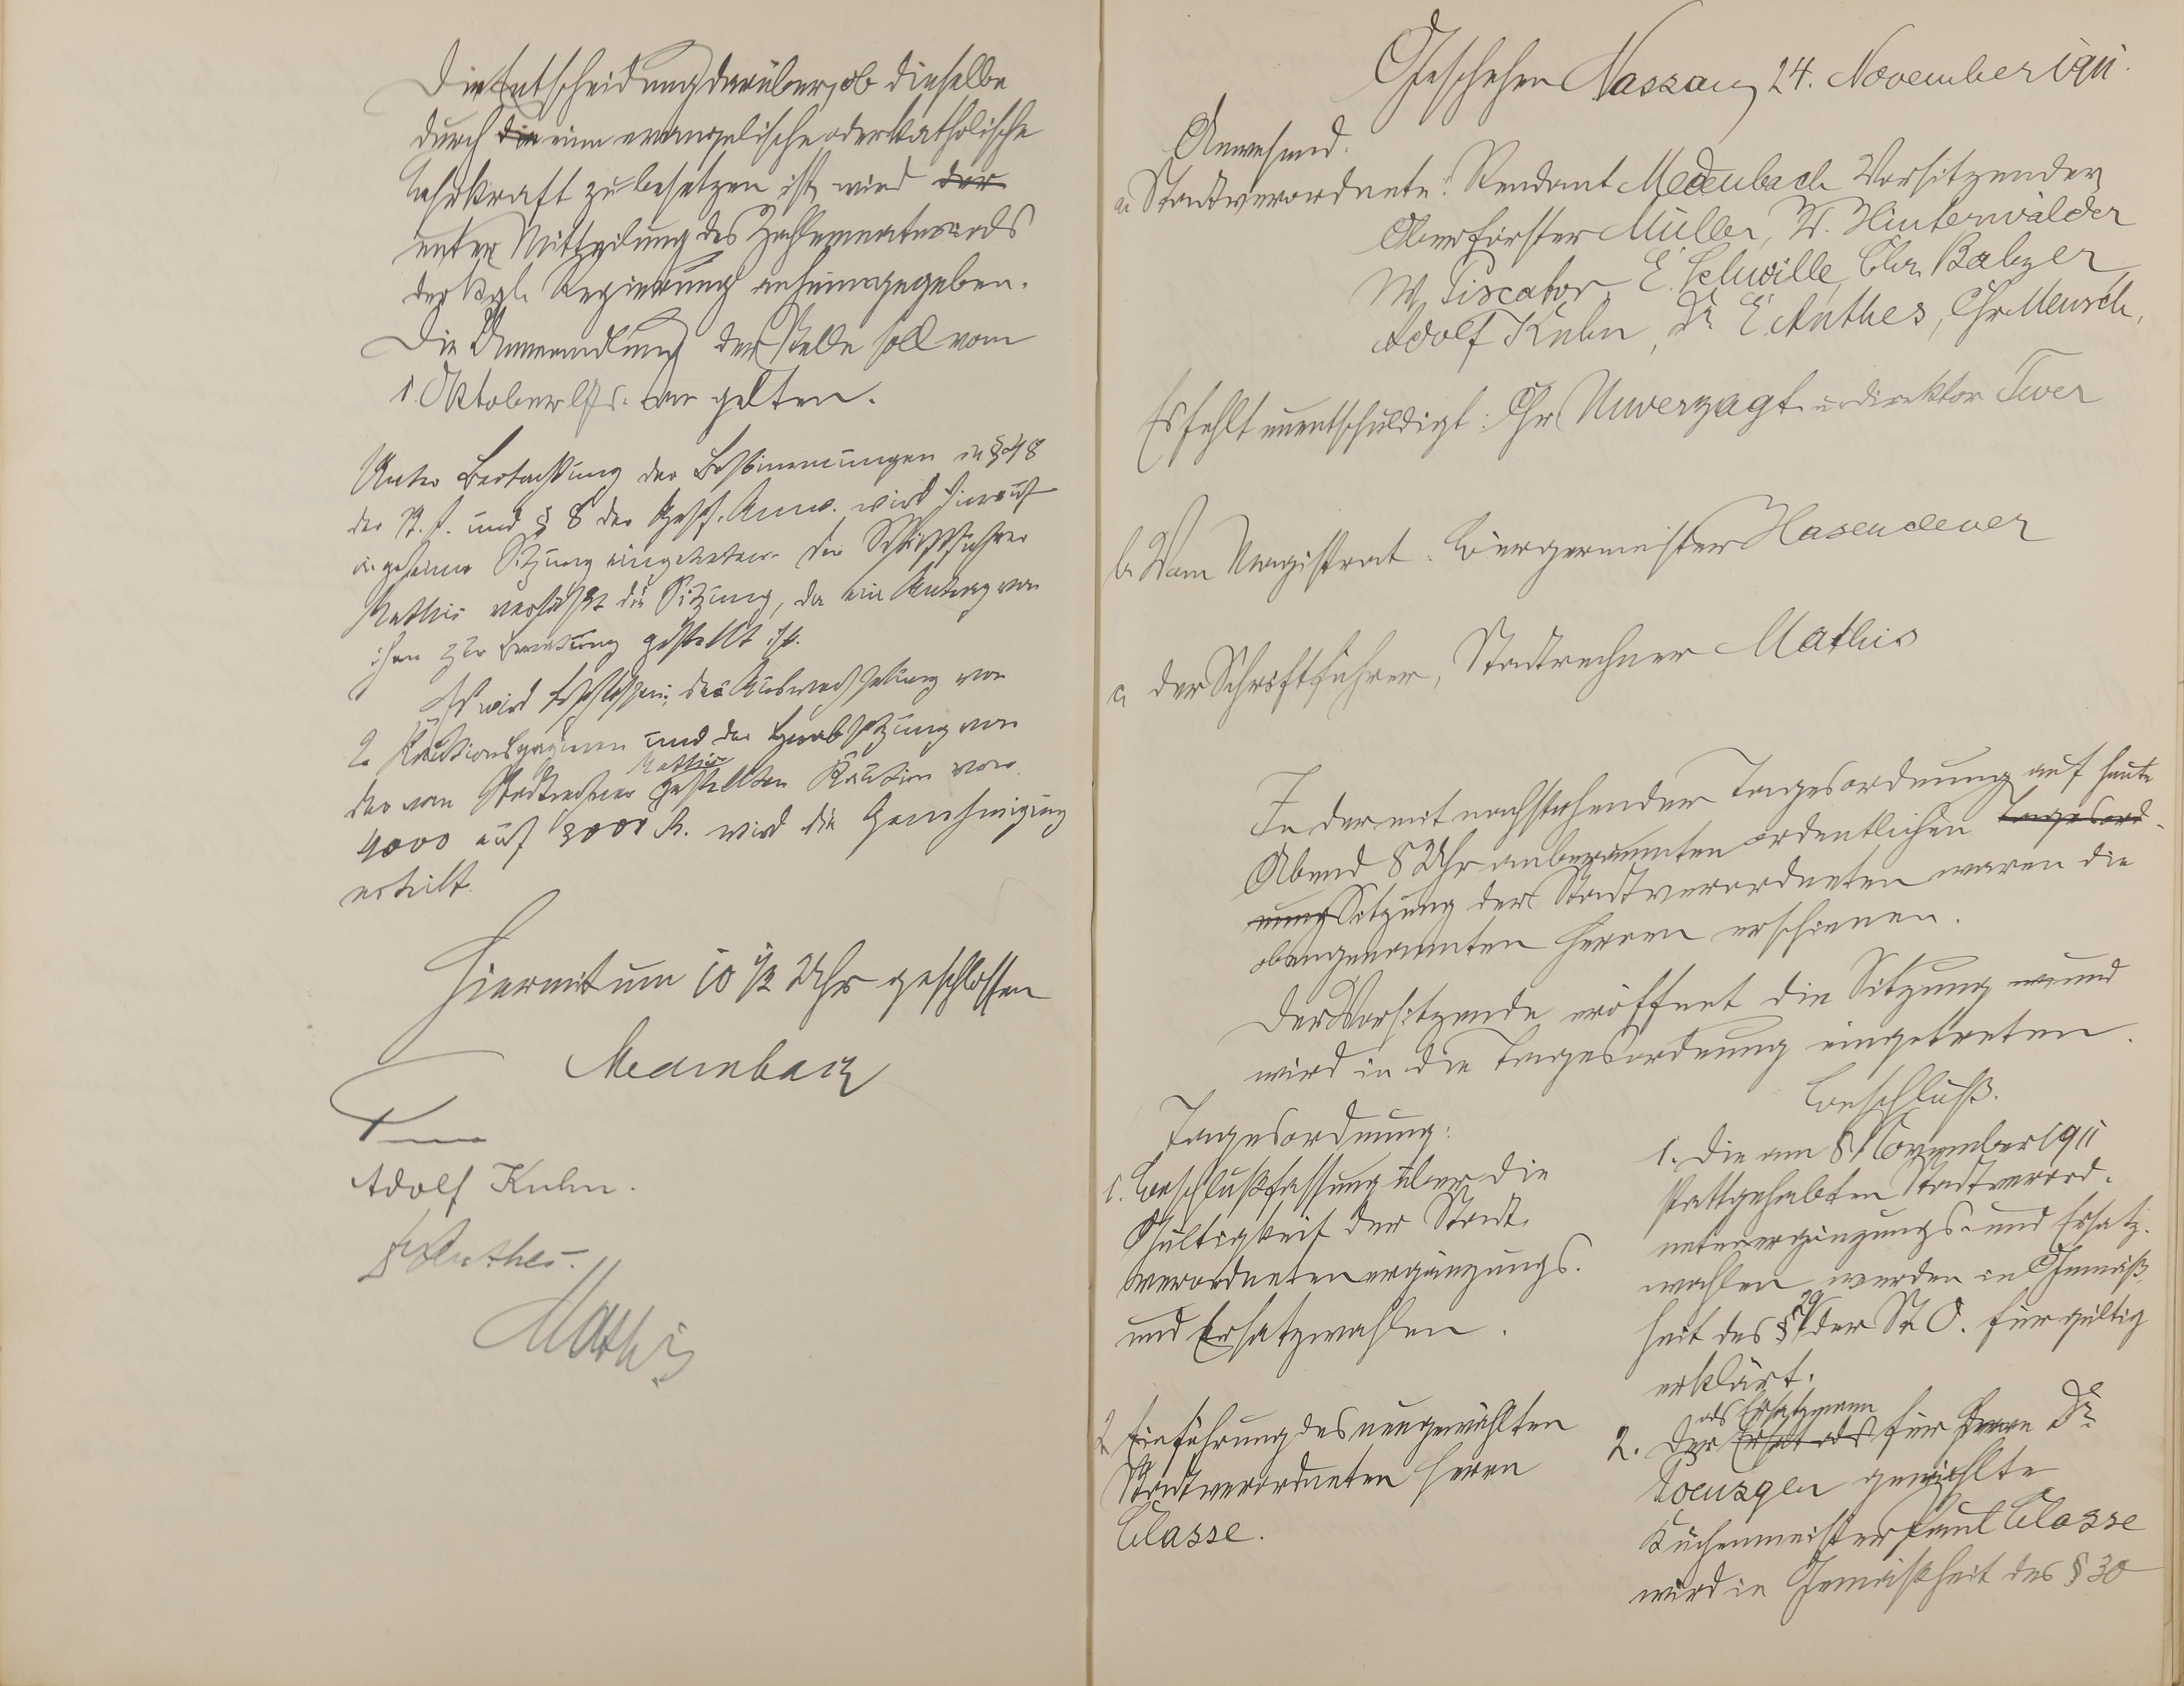 Die Entscheidung darüber, ob dieselbe
durch die eine evangelische oder katholische
Lehrkraft zu besetzen ist, wird der
unter Mitteilung des Zahlenmaterials
der Kgl. Regierung anheimgegeben.
Die Anwendung der Stelle soll vom
1. Oktober lfd. an gelten.
Unter Beobachtung der Bestimmungen in § 48
der St. O. und § 8 der Gesch. Anw. wird hierauf
in geheime Sitzung eingetreten. Der Schriftführer
Mathis verläßt die Sitzung, da ein Antrag von
ihm zur Beratung gestellt ist.
Es wird beschlossen: der Auswechselung von
2 Kautionshypotheken und der Herabsetzung von
der vom Stadtrechner Mathis gestellten Kaution von
4000 auf 3000 M. wird die Genehmigung
erteilt.
Hiermit um 10 1/2 Uhr geschlossen
Medenbach
Adolf Kuhn.
Dr Anthes.
Mathis
Geschehen Nassau, 24. November 1911.
Anwesend:
a. Stadtverordnete: Rendant Medenbach Vorsitzender,
Oberförster Müller, W. Hinterwälder
W. Piscator, E. Schwille, Chr. Balzer,
Adolf Kuhn, Dr E. Anthes, Chr Mensch,
Es fehlt unentschuldigt: Chr Unverzagt u. Direktor Twer
b. Vom Magistrat: Bürgermeister Hasenclever
c. der Schriftführer, Stadtrechner Mathis
In der mit nachstehender Tagesordnung auf heute
Abend 8 Uhr anberaumten ordentlichen Tagesord-
nung Sitzung der Stadtverordneten waren die
obengenannten Herren erschienen.
Der Vorsitzende eröffnet die Sitzung und
wird in die Tagesordnung eingetreten.
Beschluß.
Tagesordnung:
1. Beschlußfassung über die
Gültigkeit der Stadt-
verordnetenergänzungs-
und Ersatzwahlen.
1. Die am 8 November 1911
stattgehabten Stadtverord-
netenergänzungs- und Ersatz-
wahlen werden in Gemäß-
heit des § 29 der St. O. für gültig
erklärt.
2. Einführung des neugewählten
Stadtverordneten Herrn
Classe.
2. Der als Ersatzmann für Herrn Dr
Poensgen gewählte
Küchenmeister Paul Classe
wird in Gemäßheit des § 30